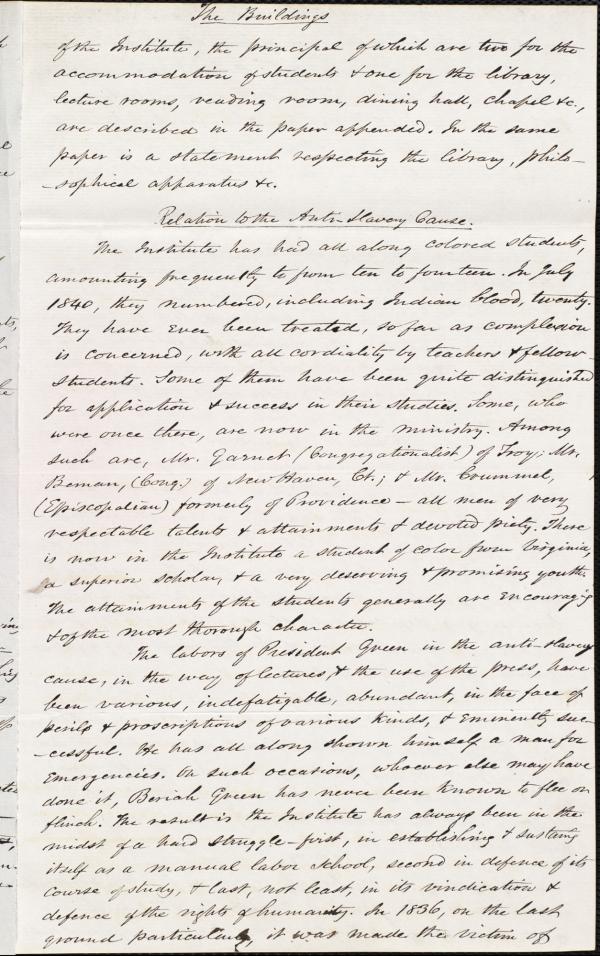 The Buildings
of the Institute, the principal of which are two for the
accommodation of students & one for the library,
lecture rooms, reading room, dining hall, chapel &c.,
are described in the paper appended. In the same
paper is a statement respecting the library, philo-
-sophical apparatus &c.
Relation to the Anti-Slavery Cause.
The Institute has had all along colored students,
amounting frequently to from ten to fourteen. In July
1840, they numbered, including Indian blood, twenty.
They have ever been treated, so far as complexion
is concerned, with all cordiality by teachers & fellow-
students. Some of them have been quite distinguished
for application & success in their studies. Some, who
were once there, are now in the ministry. Among
such are, Mr. Garnet (Congregationalist) of Troy; Mr.
Beman, (Cong.) of New Haven, Ct.; & Mr. Crummel,
(Episcopalian) formerly of Providence – all men of very
respectable talents & attainments & devoted piety. There
is now in the Institute a student of color from Virginia,
a superior scholar, & a very deserving & promising youth.
The attainments of the students generally are encouraging
& of the most thorough character.
The labors of President Green in the anti-slavery
cause, in the way of lectures, & the use of the press, have
been various, indefatigable, abundant, in the face of
perils & proscriptions of various kinds, & eminently suc-
-cessful. He has all along shown himself a man for
emergencies. On such occasions, whoever else may have
done it, Beriah Green has never been known to flee or
flinch. The result is the Institute has always been in the
midst of a hard struggle – first, in establishing & sustaing
itself as a manual labor school, second in defence of its
course of study, & last, not least, in its vindication &
defence of the rights of humanity. In 1836, on the last
ground particularly, it was made the victim of